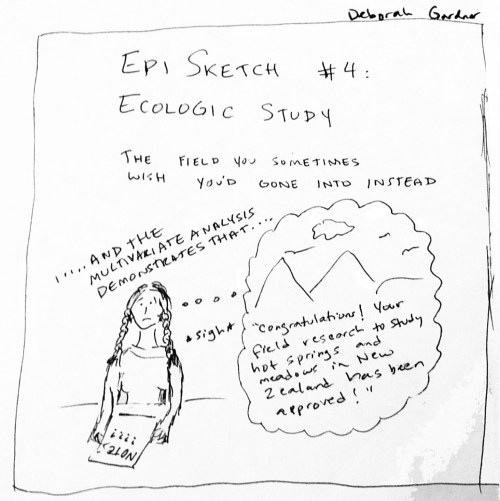 Deborah Gardner
EPI SKETCH #4:
ECOLOGIC STUDY
THE FIELD YOU SOMETIMES
WISH YOU'D GONE INTO INSTEAD
.....AND THE
MULTIVARIATE ANALYSIS
DEMONSTRATES THAT....
*sigh*
"Congratulations! Your
field research to study
hot springs and
meadows in New
Zealand has been
approved!"